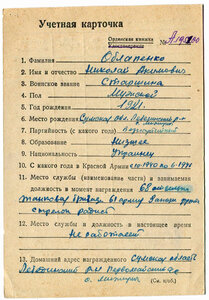 Учетная карточка
Орденская книжка
Удостоверение
№ А
1. Фамилия Облапенко
2. Имя и отчество Николай Акимович
3. Воинское звание Старшина
4. Пол Мужской
5. Год рождения 1921
6. Место рождения Сумская обл.
7. Партийность (с какого года) Беспартийный
8. Образование Низшее
9. Национальность Украинец
10. С какого года в Красной Армии с 1940 по
11. Место службы (наименование части) и занимаемая
должность в момент награждения 68 отдельная
танковая бригада 61 армии
стрелок радист
12. Место службы и должность в настоящее время
Не работает
13. Домашний адрес награжденного Сумская область
(См. н/об.)